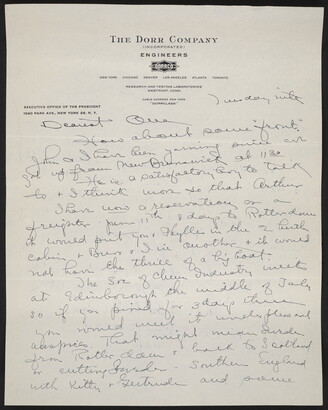 THE DORR COMPANY
(INCORPORATED)
ENGINEERS
DORRCO
NEW YORK CHICAGO DENVER LOS ANGELES ATLANTA TORONTO
RESEARCH AND TESTING LABORATORIES
WESTPORT, CONN.
EXECUTIVE OFFICE OF THE PRESIDENT
Tuesday nite
Dearest
How about some "front."
John & I have been yarning since we
got up from New Brunswick at 11:30
He is a satisfactory boy to talk
to & I think more so that Arthur
I have now a reservation on a
freighter June 11th 8 days to Rotterdam
it would put you & Phyllis in the 2 berth
cabin & & I in another & it would
not have the thrill of a big boat.
The Soc of Chem Industry meets
at Edinborough the middle of July
so if you joined for 3 days there
you would meet it under pleasant
auspices. That might mean
from Rotterdam back to Scotland
or cutting Southern England
with Kitty & Gertrude and some